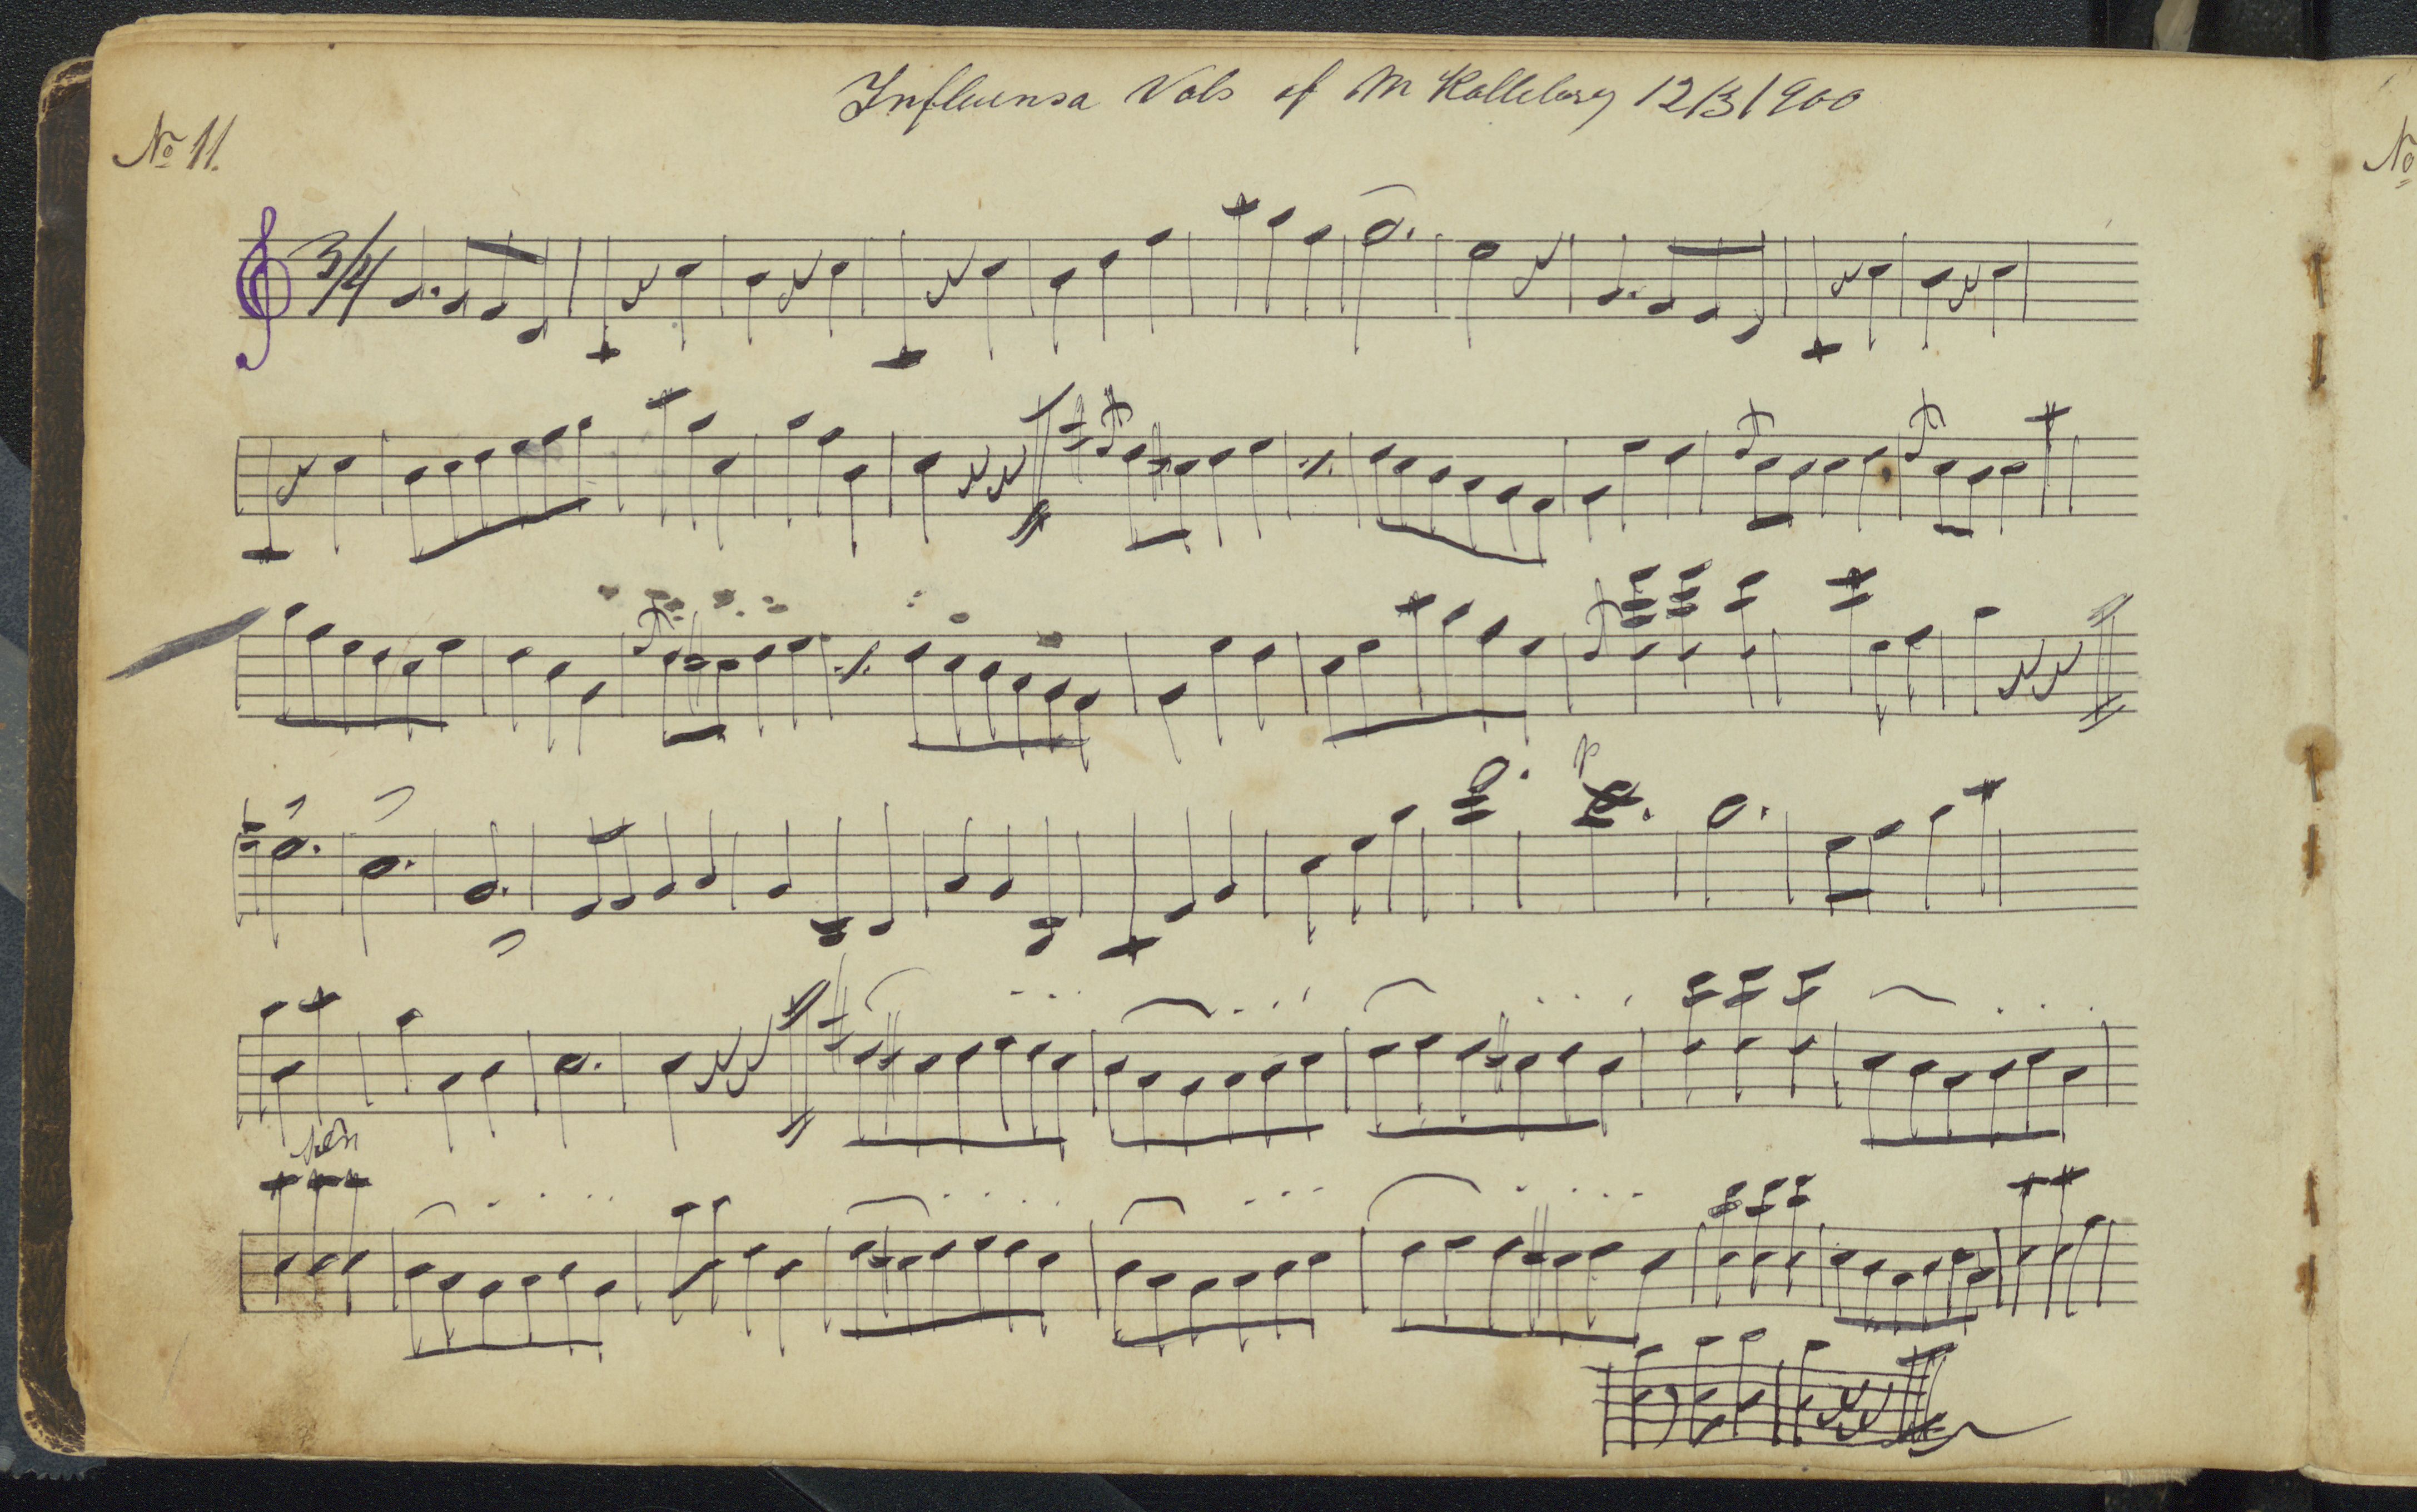 Influensa Vals af M Kalleberg 12/3 1900
No 11.
3/4
No
p